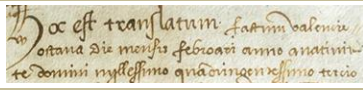 Hoc est translatum factum valencie
octaua die mensis febroarii anno a natiuita
te domini millessimo quadringendessimo tercio